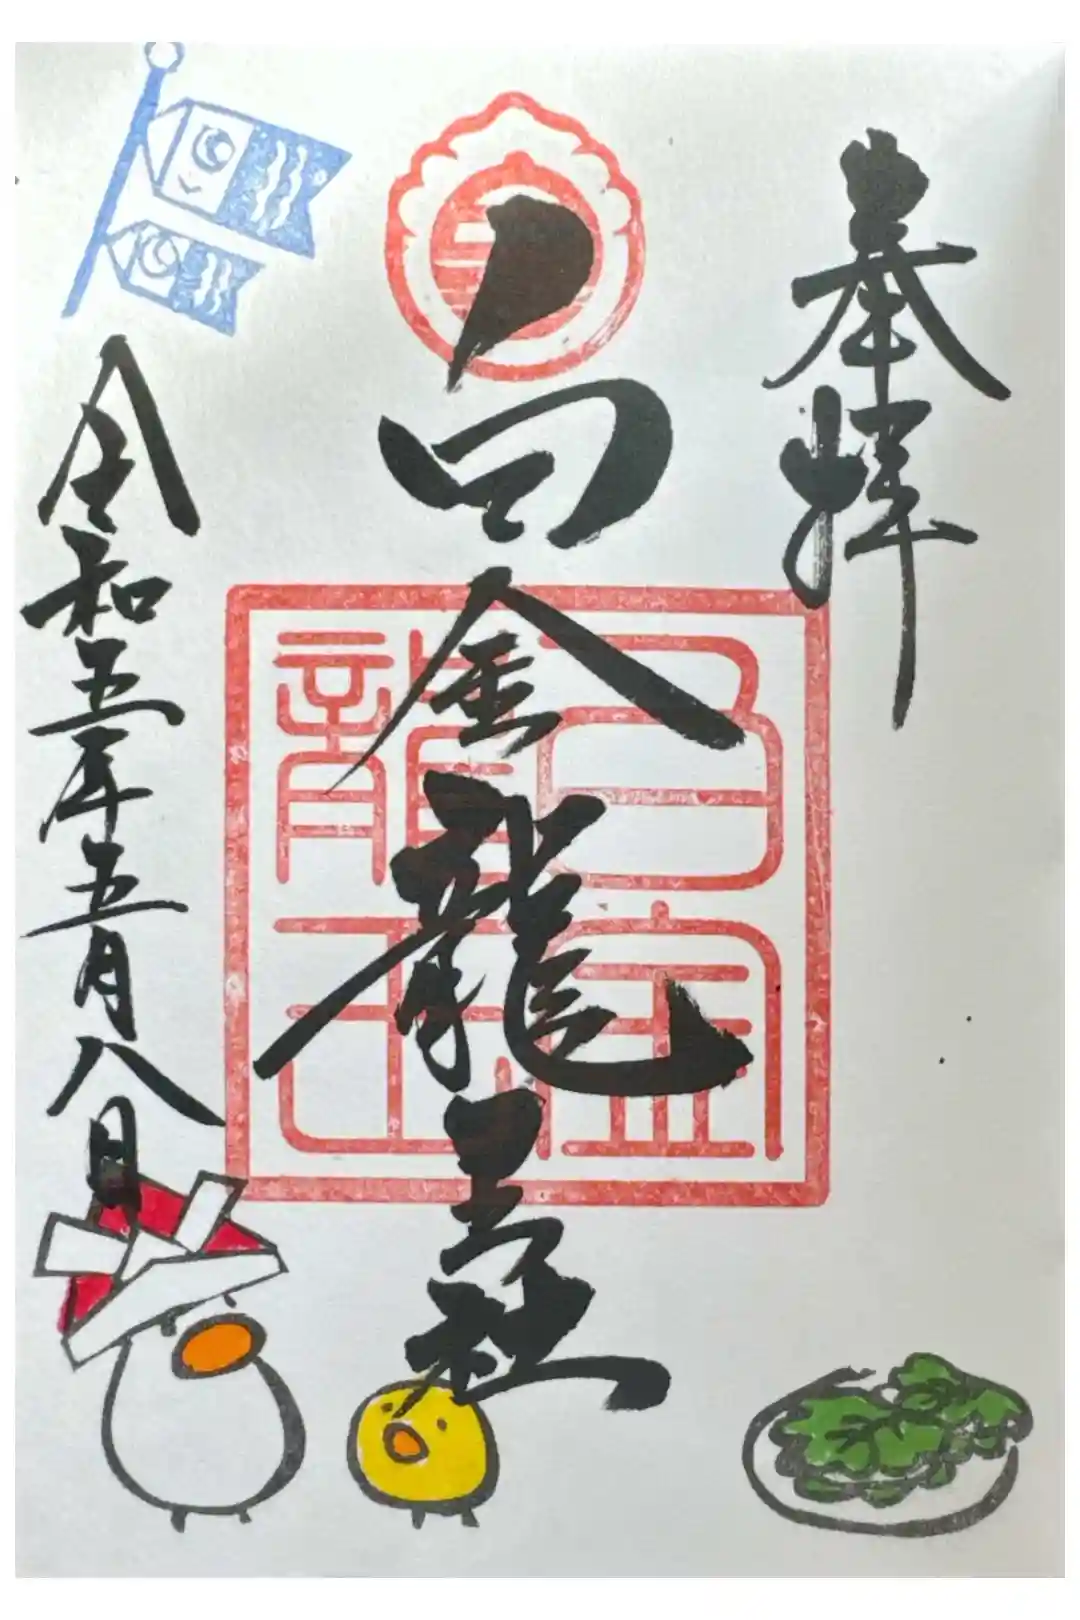 奉拝
白金龍王社
白金
龍王
令和五年五月八日